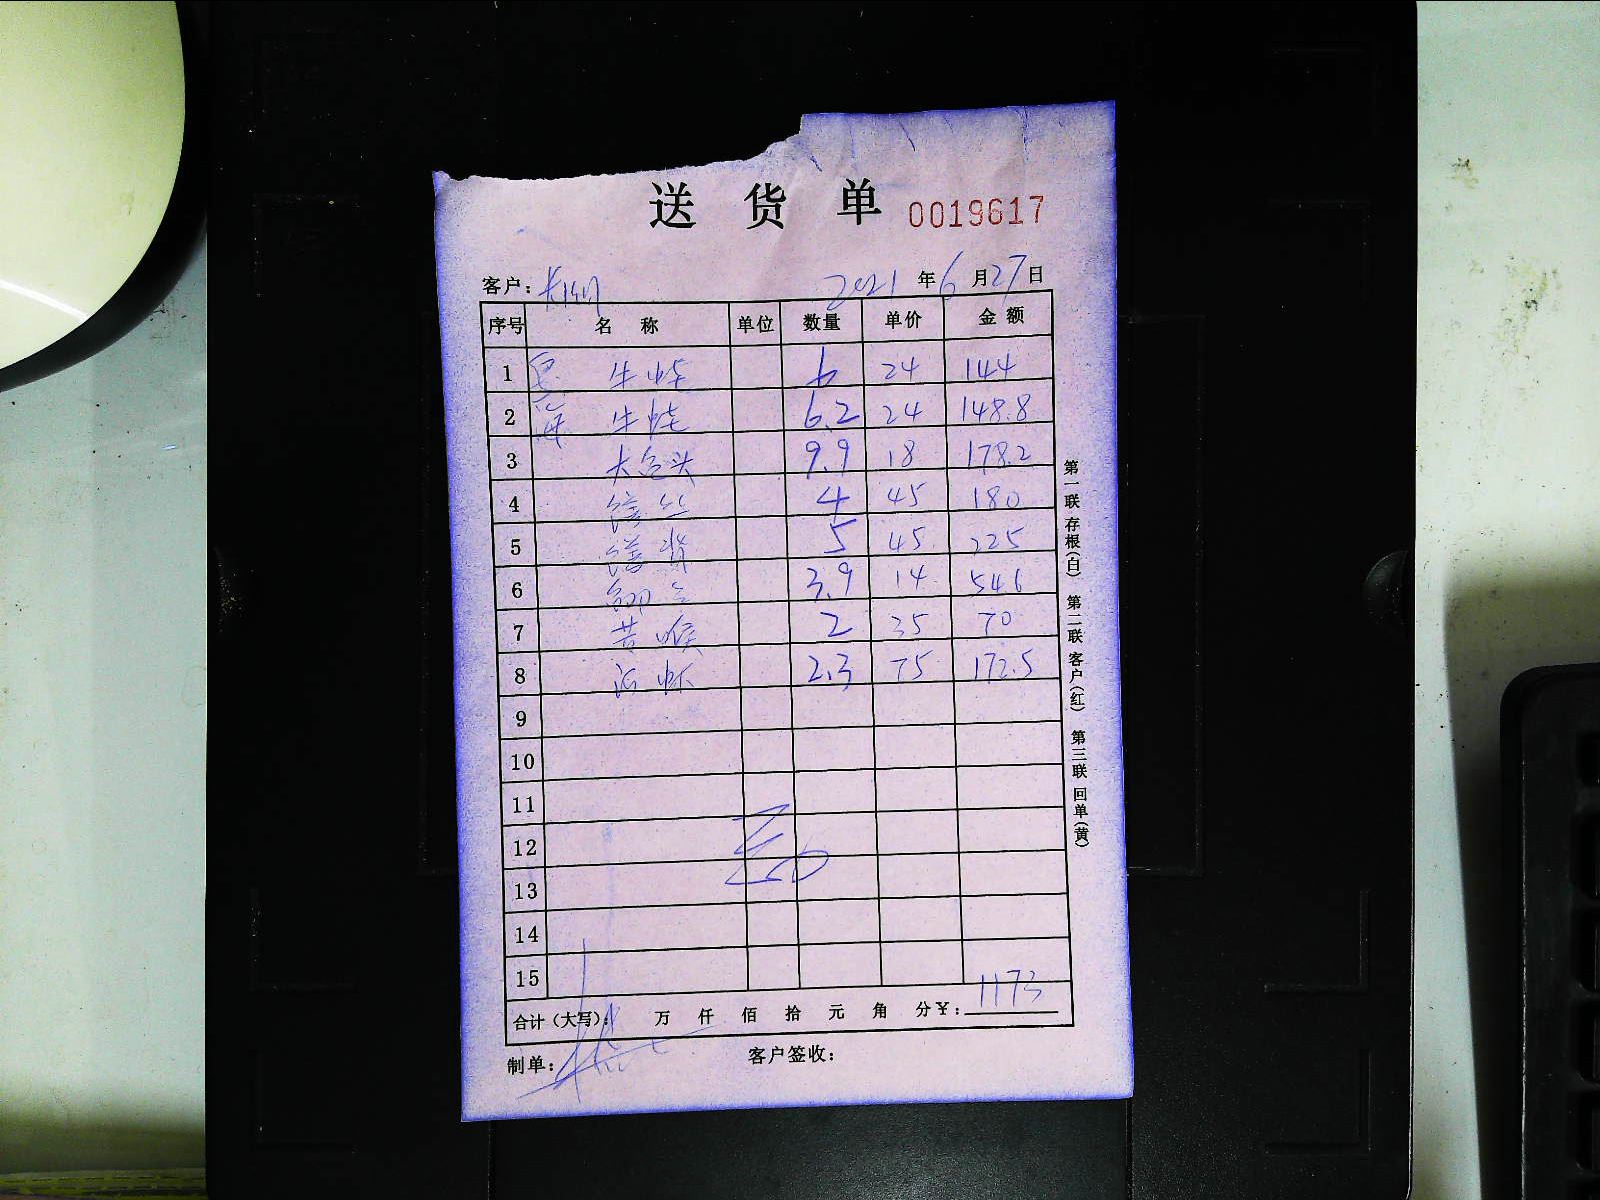 送 货 单 0019617
客户: 2021 年 6 月 27 日
序号 名 称 单位 数量 单价 金额
1 牛 6 24 144
2 牛 6.2 24 148.8
3 大包头 9.9 18 178.2
4 4 45 180
5 5 45 225
6 3.9 14 546
7 苦 喉 2 35 70
8 2.3 75 172.5
9
10
11
12
13
14
15
合计(大写): 万 仟 佰 拾 元 角 分 ¥: 1173
制单: 客户签收:
第一联 存根(白) 第二联 客户(红) 第三联 回单(黄)